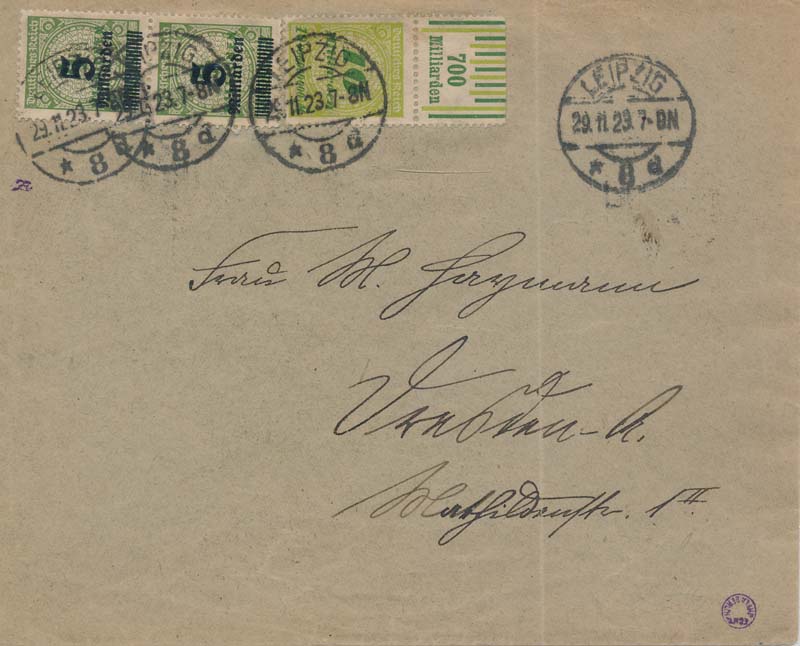 Deutsches Reich
5
Milliarden
Deutsches Reich
5
Milliarden
10
Deutsches Reich
700
Milliarden
LEIPZIG
29.11.23.7-
* 8 d
LEIPZIG
29.11.23.7-8N
* 8 d
LEIPZIG
29.11.23.7-8N
* 8 d
LEIPZIG
29.11.23.7-8N
* 8 d
Frau M. Haymann
Dresden-A.
Mathildenstr. 1 II